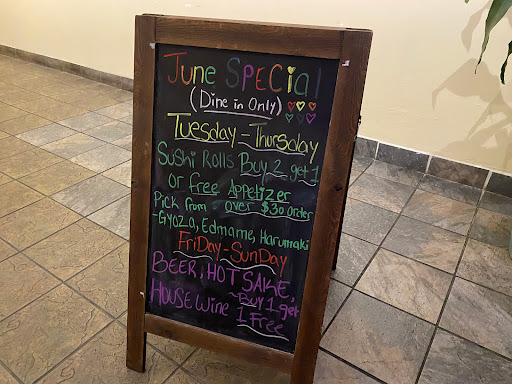 June SPECial
(Dine in Only)
Tuesday - Thursday
Sushi Rolls Buy 2 get 1
or free Appetizer
Pick from over $30 order
-Gyoza, Edmame, Harumaki
FriDay - SunDay
BEER, HOT SAKE,
HOUSE Wine ~Buy 1 get
1 Free